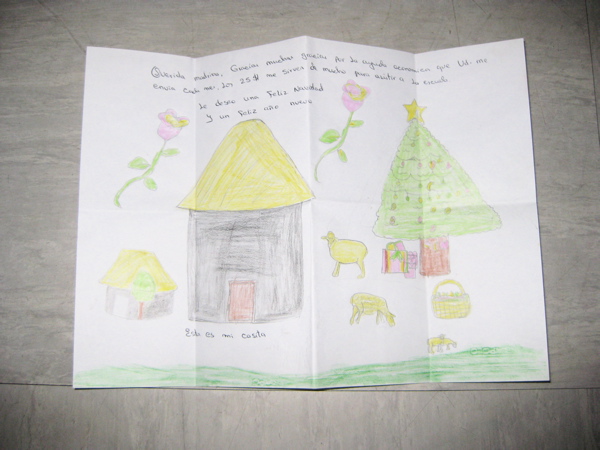 Querida madrina, Gracias muchas gracias por su ayuda economica que Ud. me
envia cada mes. Los 25$ me sirven de mucho para asistir a la escuela
Le deseo una Feliz Navidad
Y un Feliz año nuevo
Esta es mi casita